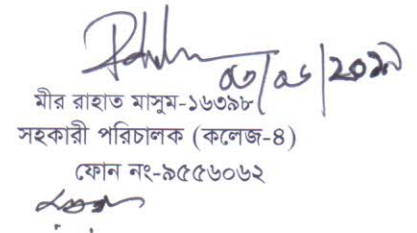 ০৩/০৬/২০১৯
মীর রাহাত মাসুম-১৬৩৯৮
সহকারী পরিচালক (কলেজ-৪)
ফোন নং-৯৫৫৬০৬২